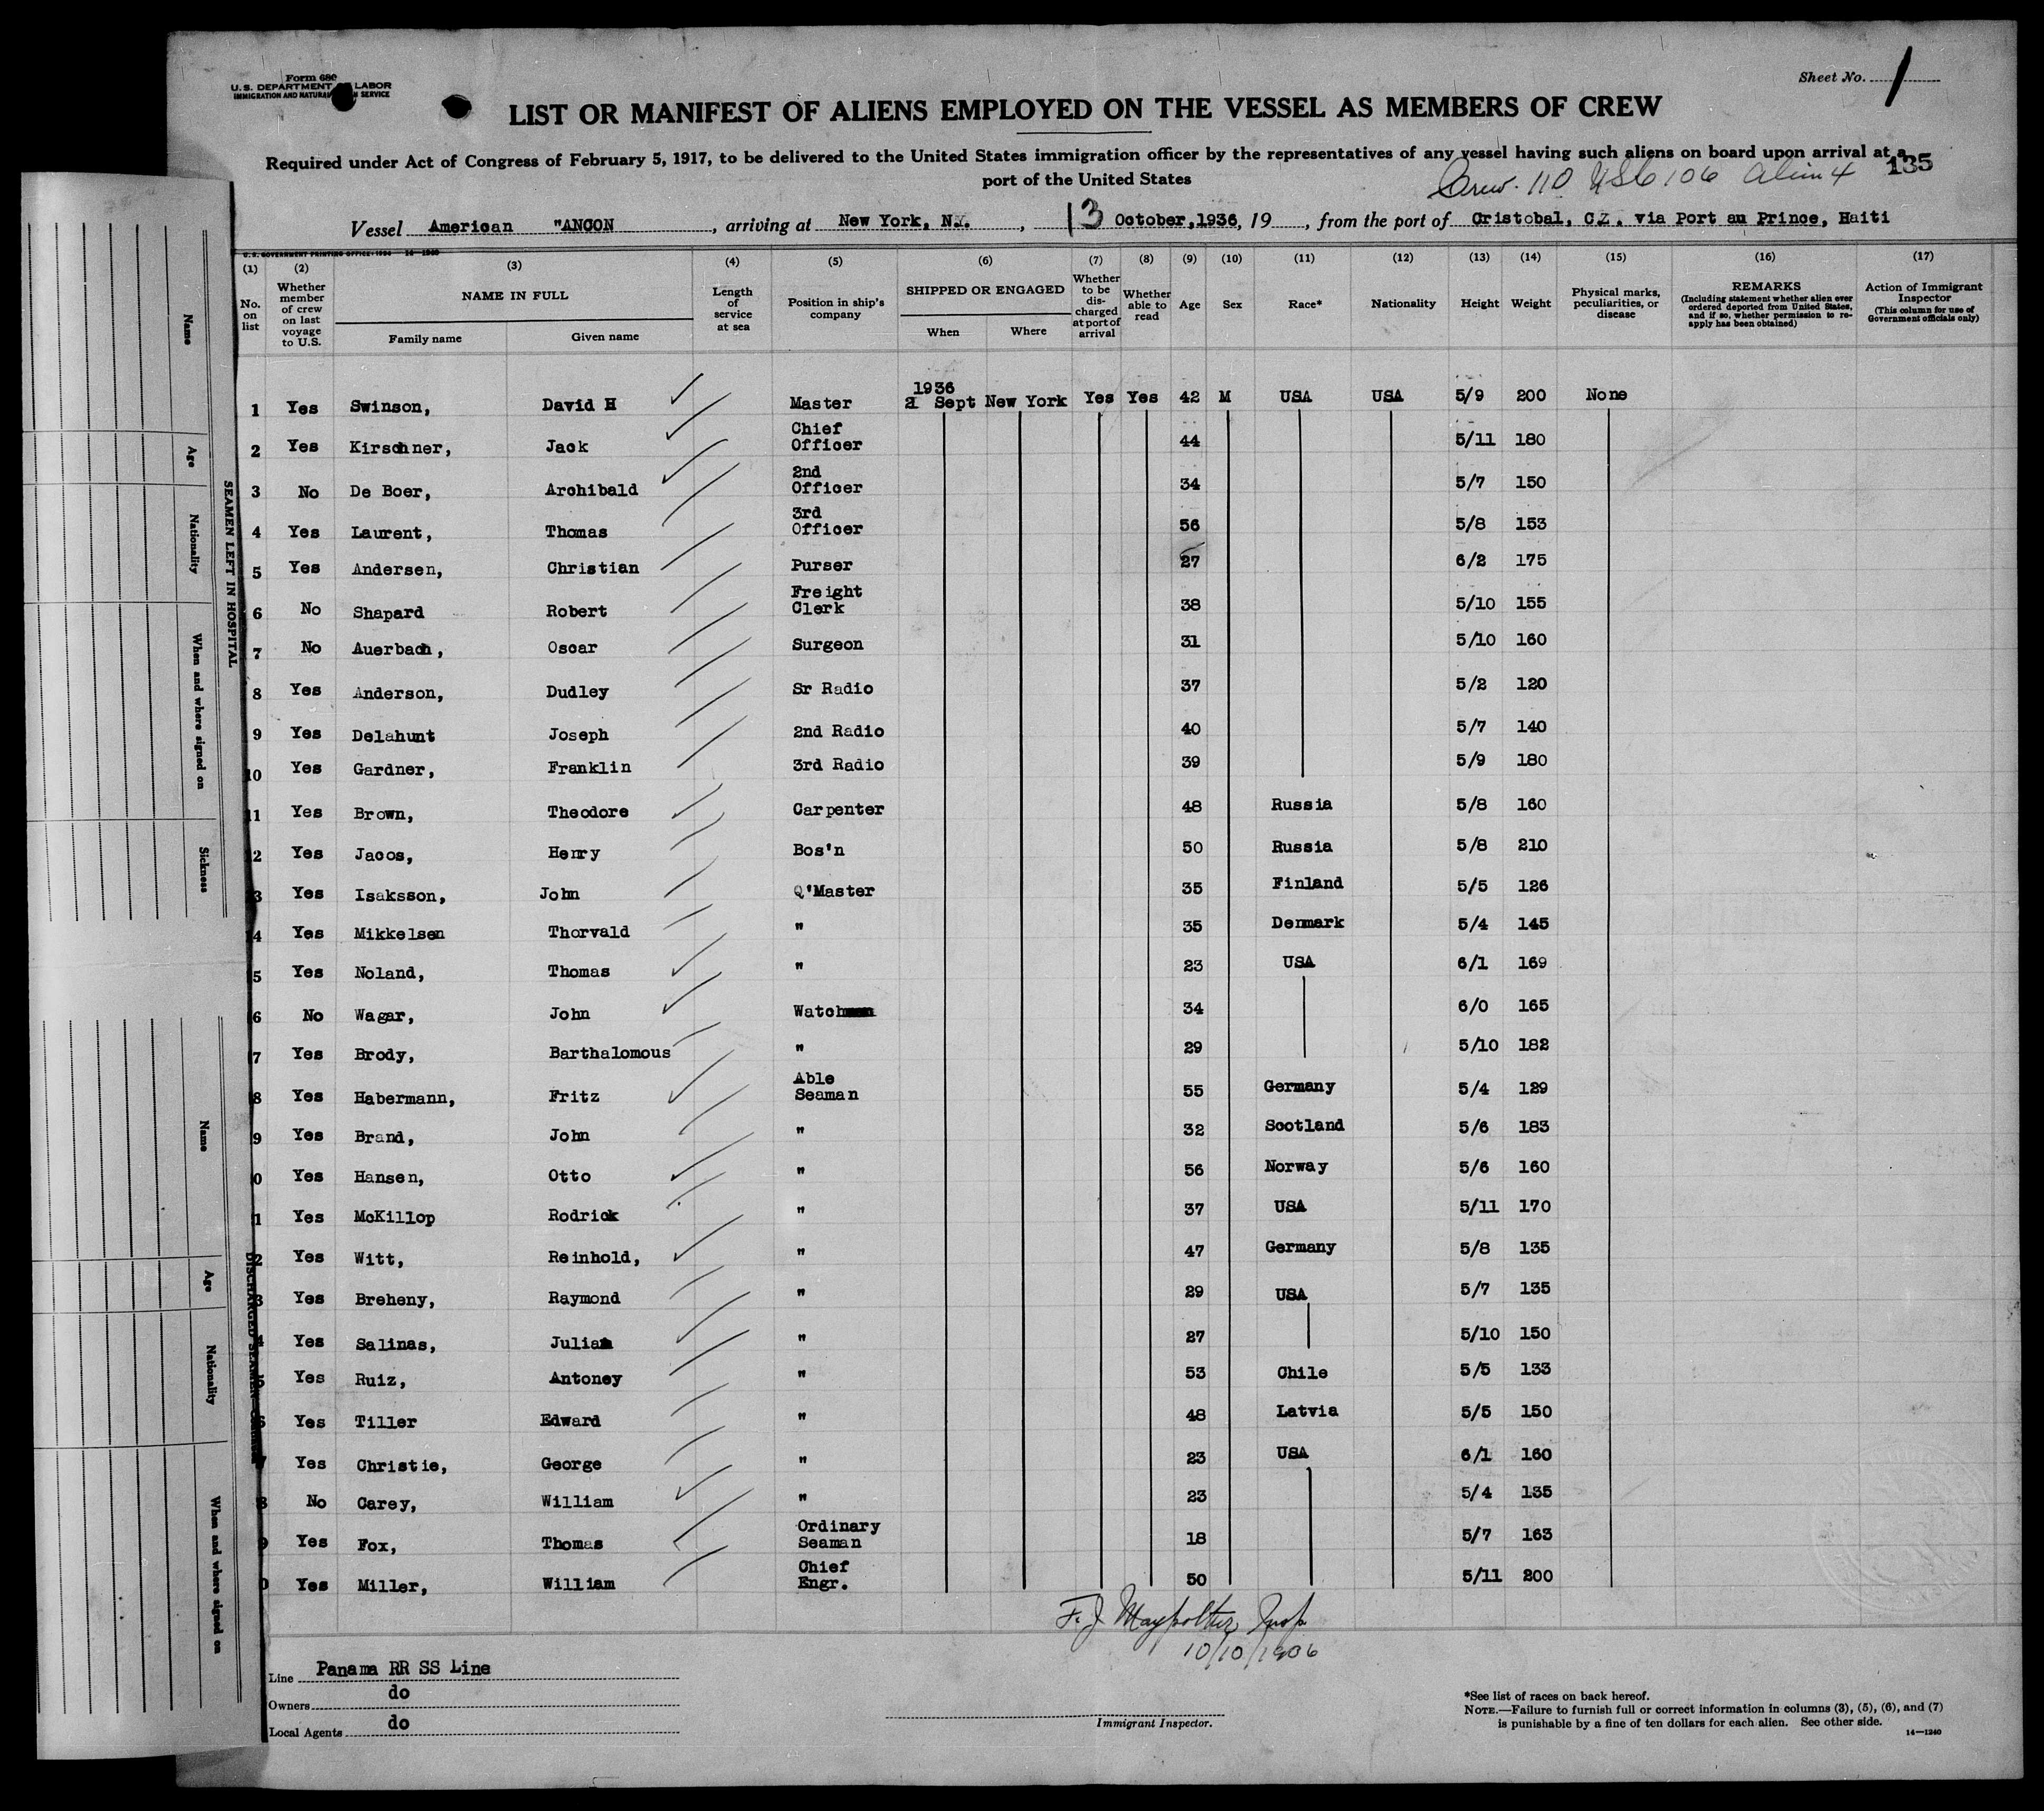 Form 680
U.S. DEPARTMENT OF LABOR
IMMIGRATION AND NATURALIZATION SERVICE
Sheet No. 1
LIST OR MANIFEST OF ALIENS EMPLOYED ON THE VESSEL AS MEMBERS OF CREW
Required under Act of Congress of February 5, 1917, to be delivered to the United States immigration officer by the representatives of any vessel having such aliens on board upon arrival at a
port of the United States
135
Crew. 110 USC 106 Alien 4
Vessel American "ANCON , arriving at New York, N.Y. , 13 October,1936, 19 , from the port of Cristobal, CZ. via Port au Prince, Haiti
U.S. GOVERNMENT PRINTING OFFICE: 1934 14—1240
(1) (2) (3) (4) (5) (6) (7) (8) (9) (10) (11) (12) (13) (14) (15) (16) (17)
No. on list
Whether member of crew on last voyage to U.S.
NAME IN FULL
Family name Given name
Length of service at sea
Position in ship's company
SHIPPED OR ENGAGED
When Where
Whether to be discharged at port of arrival
Whether able to read
Age
Sex
Race*
Nationality
Height
Weight
Physical marks, peculiarities, or disease
REMARKS
(Including statement whether alien ever ordered deported from United States, and if so, whether permission to re-apply has been obtained)
Action of Immigrant Inspector
(This column for use of Government officials only)
1936
1 Yes Swinson, David H Master 2 Sept New York Yes Yes 42 M USA USA 5/9 200 None
2 Yes Kirschner, Jack Chief Officer 44 5/11 180
3 No De Boer, Archibald 2nd Officer 34 5/7 150
4 Yes Laurent, Thomas 3rd Officer 56 5/8 153
5 Yes Andersen, Christian Purser 27 6/2 175
6 No Shapard Robert Freight Clerk 38 5/10 155
7 No Auerbach, Oscar Surgeon 31 5/10 160
8 Yes Anderson, Dudley Sr Radio 37 5/2 120
9 Yes Delahunt Joseph 2nd Radio 40 5/7 140
10 Yes Gardner, Franklin 3rd Radio 39 5/9 180
11 Yes Brown, Theodore Carpenter 48 Russia 5/8 160
2 Yes Jacos, Henry Bos'n 50 Russia 5/8 210
3 Yes Isaksson, John Q'Master 35 Finland 5/5 126
4 Yes Mikkelsen Thorvald " 35 Denmark 5/4 145
5 Yes Noland, Thomas " 23 USA 6/1 169
6 No Wagar, John Watchman 34 6/0 165
7 Yes Brody, Barthalomous " 29 5/10 182
8 Yes Habermann, Fritz Able Seaman 55 Germany 5/4 129
9 Yes Brand, John " 32 Scotland 5/6 183
0 Yes Hansen, Otto " 56 Norway 5/6 160
1 Yes McKillop Rodrick " 37 USA 5/11 170
2 Yes Witt, Reinhold, " 47 Germany 5/8 135
3 Yes Breheny, Raymond " 29 USA 5/7 135
4 Yes Salinas, Julian " 27 5/10 150
5 Yes Ruiz, Antoney " 53 Chile 5/5 133
6 Yes Tiller Edward " 48 Latvia 5/5 150
7 Yes Christie, George " 23 USA 6/1 160
8 No Carey, William " 23 5/4 135
9 Yes Fox, Thomas Ordinary Seaman 18 5/7 163
0 Yes Miller, William Chief Engr. 50 5/11 200
F. J. Maypolther Insp
10/10/1936
Line Panama RR SS Line
Owners do
Local Agents do
Immigrant Inspector.
*See list of races on back hereof.
NOTE.—Failure to furnish full or correct information in columns (3), (5), (6), and (7)
is punishable by a fine of ten dollars for each alien. See other side.
14—1240
SEAMEN LEFT IN HOSPITAL
Name Age Nationality When and where signed on Sickness
DISCHARGED SEAMEN
Name Age Nationality When and where signed on